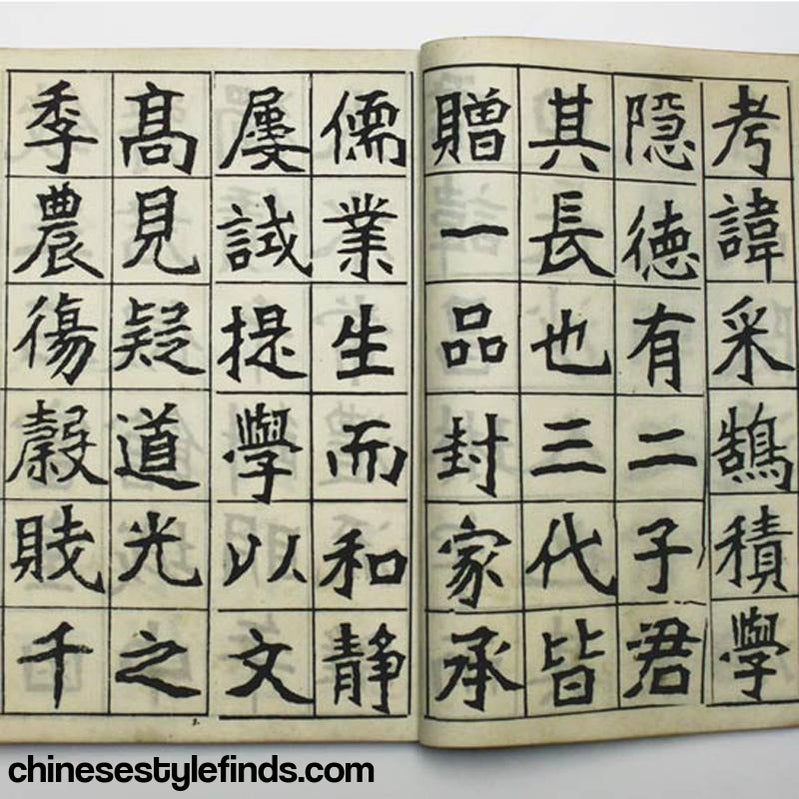 考諱采鵠積學
隠徳有二子君
其長也三代皆
贈一品封家承
儒業生而和静
屡試提學以文
髙見疑道光之
季農傷穀賎千
chinesestylefinds.com